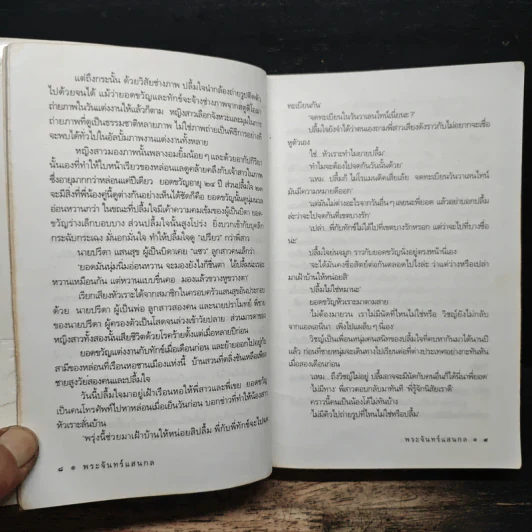 แต่ถึงกระนั้น ด้วยวิสัยช่างภาพ ปลื้มใจนำกล้องถ่ายรูปติดตัว
ไปด้วยจนได้ แม้ว่ายอดขวัญและทักข์จะจ้างช่างภาพจากสตูดิโอมา
ถ่ายภาพในวันแต่งงานให้แล้วก็ตาม หญิงสาวเลือกจังหวะและมุมในการ
ถ่ายภาพที่ดูเป็นธรรมชาติหลายภาพ ไม่ใช่ภาพถ่ายเป็นพิธีการอย่างที่
จะพบได้ทั่วไปในอัลบั้มภาพงานแต่งงานทั้งหลาย
หญิงสาวมองภาพนั้นพลางอมยิ้มน้อยๆ และด้วยอากัปกิริยา
นั้นเองที่ทำให้ใบหน้าเรียวของหล่อนแลดูคล้ายคลึงกับเจ้าสาวในภาพ
ซึ่งอายุมากกว่าหล่อนแค่ปีเดียว ยอดขวัญอายุ ๒๙ ปี ส่วนปลื้มใจ ๒๘
จะมีสิ่งที่พี่น้องคู่นี้ดูต่างกันอย่างเห็นได้ชัดก็คือ ยอดขวัญนั้นดูนุ่มนวล
อ่อนหวานกว่า ในขณะที่ปลื้มใจมีเค้าความคมเข้มของผู้เป็นบิดา ยอด
ขวัญร่างเล็กบอบบาง ส่วนปลื้มใจนั้นสูงโปร่ง ยิ่งบวกเข้ากับบุคลิก
กระฉับกระเฉง มั่นอกมั่นใจ ทำให้ปลื้มใจดู "เปรี้ยว" กว่าพี่สาว
นายปรีดา แสนสุข ผู้เป็นบิดาเคย "แซว" ลูกสาวคนเล็กว่า
'ยอดมันนุ่มนิ่มยังกับขนมหวาน จะมองยังไงก็ชื่นตา ไอ้ปลื้มน่ะจะ
หวานเหมือนกัน แต่หวานแบบขึ้นคอ มองแล้วขวางหูขวางตา'
เรียกเสียงหัวเราะได้จากสมาชิกในครอบครัวแสนสุขอันประกอบ
ด้วย นายปรีดา ผู้เป็นพ่อ ลูกสาวสองคน และนายปราโมทย์ พี่ชาย
ของนายปรีดา ผู้ครองตัวเป็นโสดจนล่วงเข้าวัยปลาย ส่วนมารดาของ
หญิงสาวทั้งสองนั้นเสียชีวิตด้วยโรคร้ายตั้งแต่เมื่อหลายปีก่อน
ยอดขวัญแต่งงานกับทักข์เมื่อเดือนก่อน และย้ายออกไปอยู่กับ
สามีของหล่อนที่เรือนหอชานเมืองแห่งนี้ บ้านสวนที่ตลิ่งชันเหลือเพียง
ชายสูงวัยสองคนและปลื้มใจ
วันนี้ปลื้มใจมาอยู่เฝ้าเรือนหอให้พี่สาวและพี่เขย ยอดขวัญ
เป็นคนโทรศัพท์ไปหาหล่อนเมื่อเย็นวันก่อน บอกข่าวที่ทำให้น้องสาว
หัวเราะลั่นบ้าน
'พรุ่งนี้ช่วยมาเฝ้าบ้านให้หน่อยสิปลื้ม พี่กับพี่ทักข์จะไปจด
๘ ๑ พระจันทร์แสนกล
ทะเบียนกัน'
'จดทะเบียนในวันวาเลนไทน์เนี่ยนะ?'
ปลื้มใจยังจำได้ว่าตนเองถามพี่สาวเสียงดังราวกับไม่อยากจะเชื่อ
หูตัวเอง
'ใช่...หัวเราะทำไมยายปลื้ม'
'ทำไมจะต้องไปจดกันวันนั้นด้วย'
'แหม...ปลื้มก็ ไม่โรแมนติคเสียเลย จดทะเบียนวันวาเลนไทน์
มันมีความหมายดีออก'
'แต่มันไม่ต่างอะไรจากวันอื่นๆ เลยนะพี่ยอด แล้วอย่าบอกปลื้ม
ล่ะว่าจะไปจดกันที่เขตบางรัก'
'เปล่า...พี่กับทักข์ไม่ได้ไปที่เขตบางรักหรอก แต่ว่าจะไปที่บางซื่อ
น่ะ'
ปลื้มใจย่นจมูก ราวกับยอดขวัญนั่งอยู่ตรงหน้านี้เอง
'จะได้มั่นคงซื่อสัตย์ต่อกันตลอดไปไงล่ะ ว่าแต่ว่างหรือเปล่า
มาเฝ้าบ้านให้หน่อยสิ'
'ปลื้มไม่ใช่หมานะ'
ยอดขวัญหัวเราะมาตามสาย
'ไม่ต้องมาบวน เราไม่มีนัดที่ไหนไม่ใช่หรือ วิชญ์ยังไม่กลับ
จากแอลเอนี่นา เห็นไปแผล็บๆ นี่เอง'
วิชญ์เป็นเพื่อนหนุ่มคนสนิทของปลื้มใจที่คบหากันมาได้นานปี
แล้ว ก่อนที่ชายหนุ่มจะเดินทางไปเรียนต่อที่ต่างประเทศอย่างกะทันหัน
เมื่อสองเดือนก่อน
'แหม...ถึงวิชญ์ไม่อยู่ ปลื้มอาจจะมีนัดกับคนอื่นก็ได้นี่นาพี่ยอด'
'ไม่มีทาง' พี่สาวตอบกลับมาทันที 'พี่รู้จักนิสัยเราดี'
คราวนี้คนเป็นน้องได้ไม่ทันบ้าง
'ไม่มีคิวไปถ่ายรูปที่ไหนไม่ใช่หรือปลื้ม'
พระจันทร์แสนกล ๑ ๙